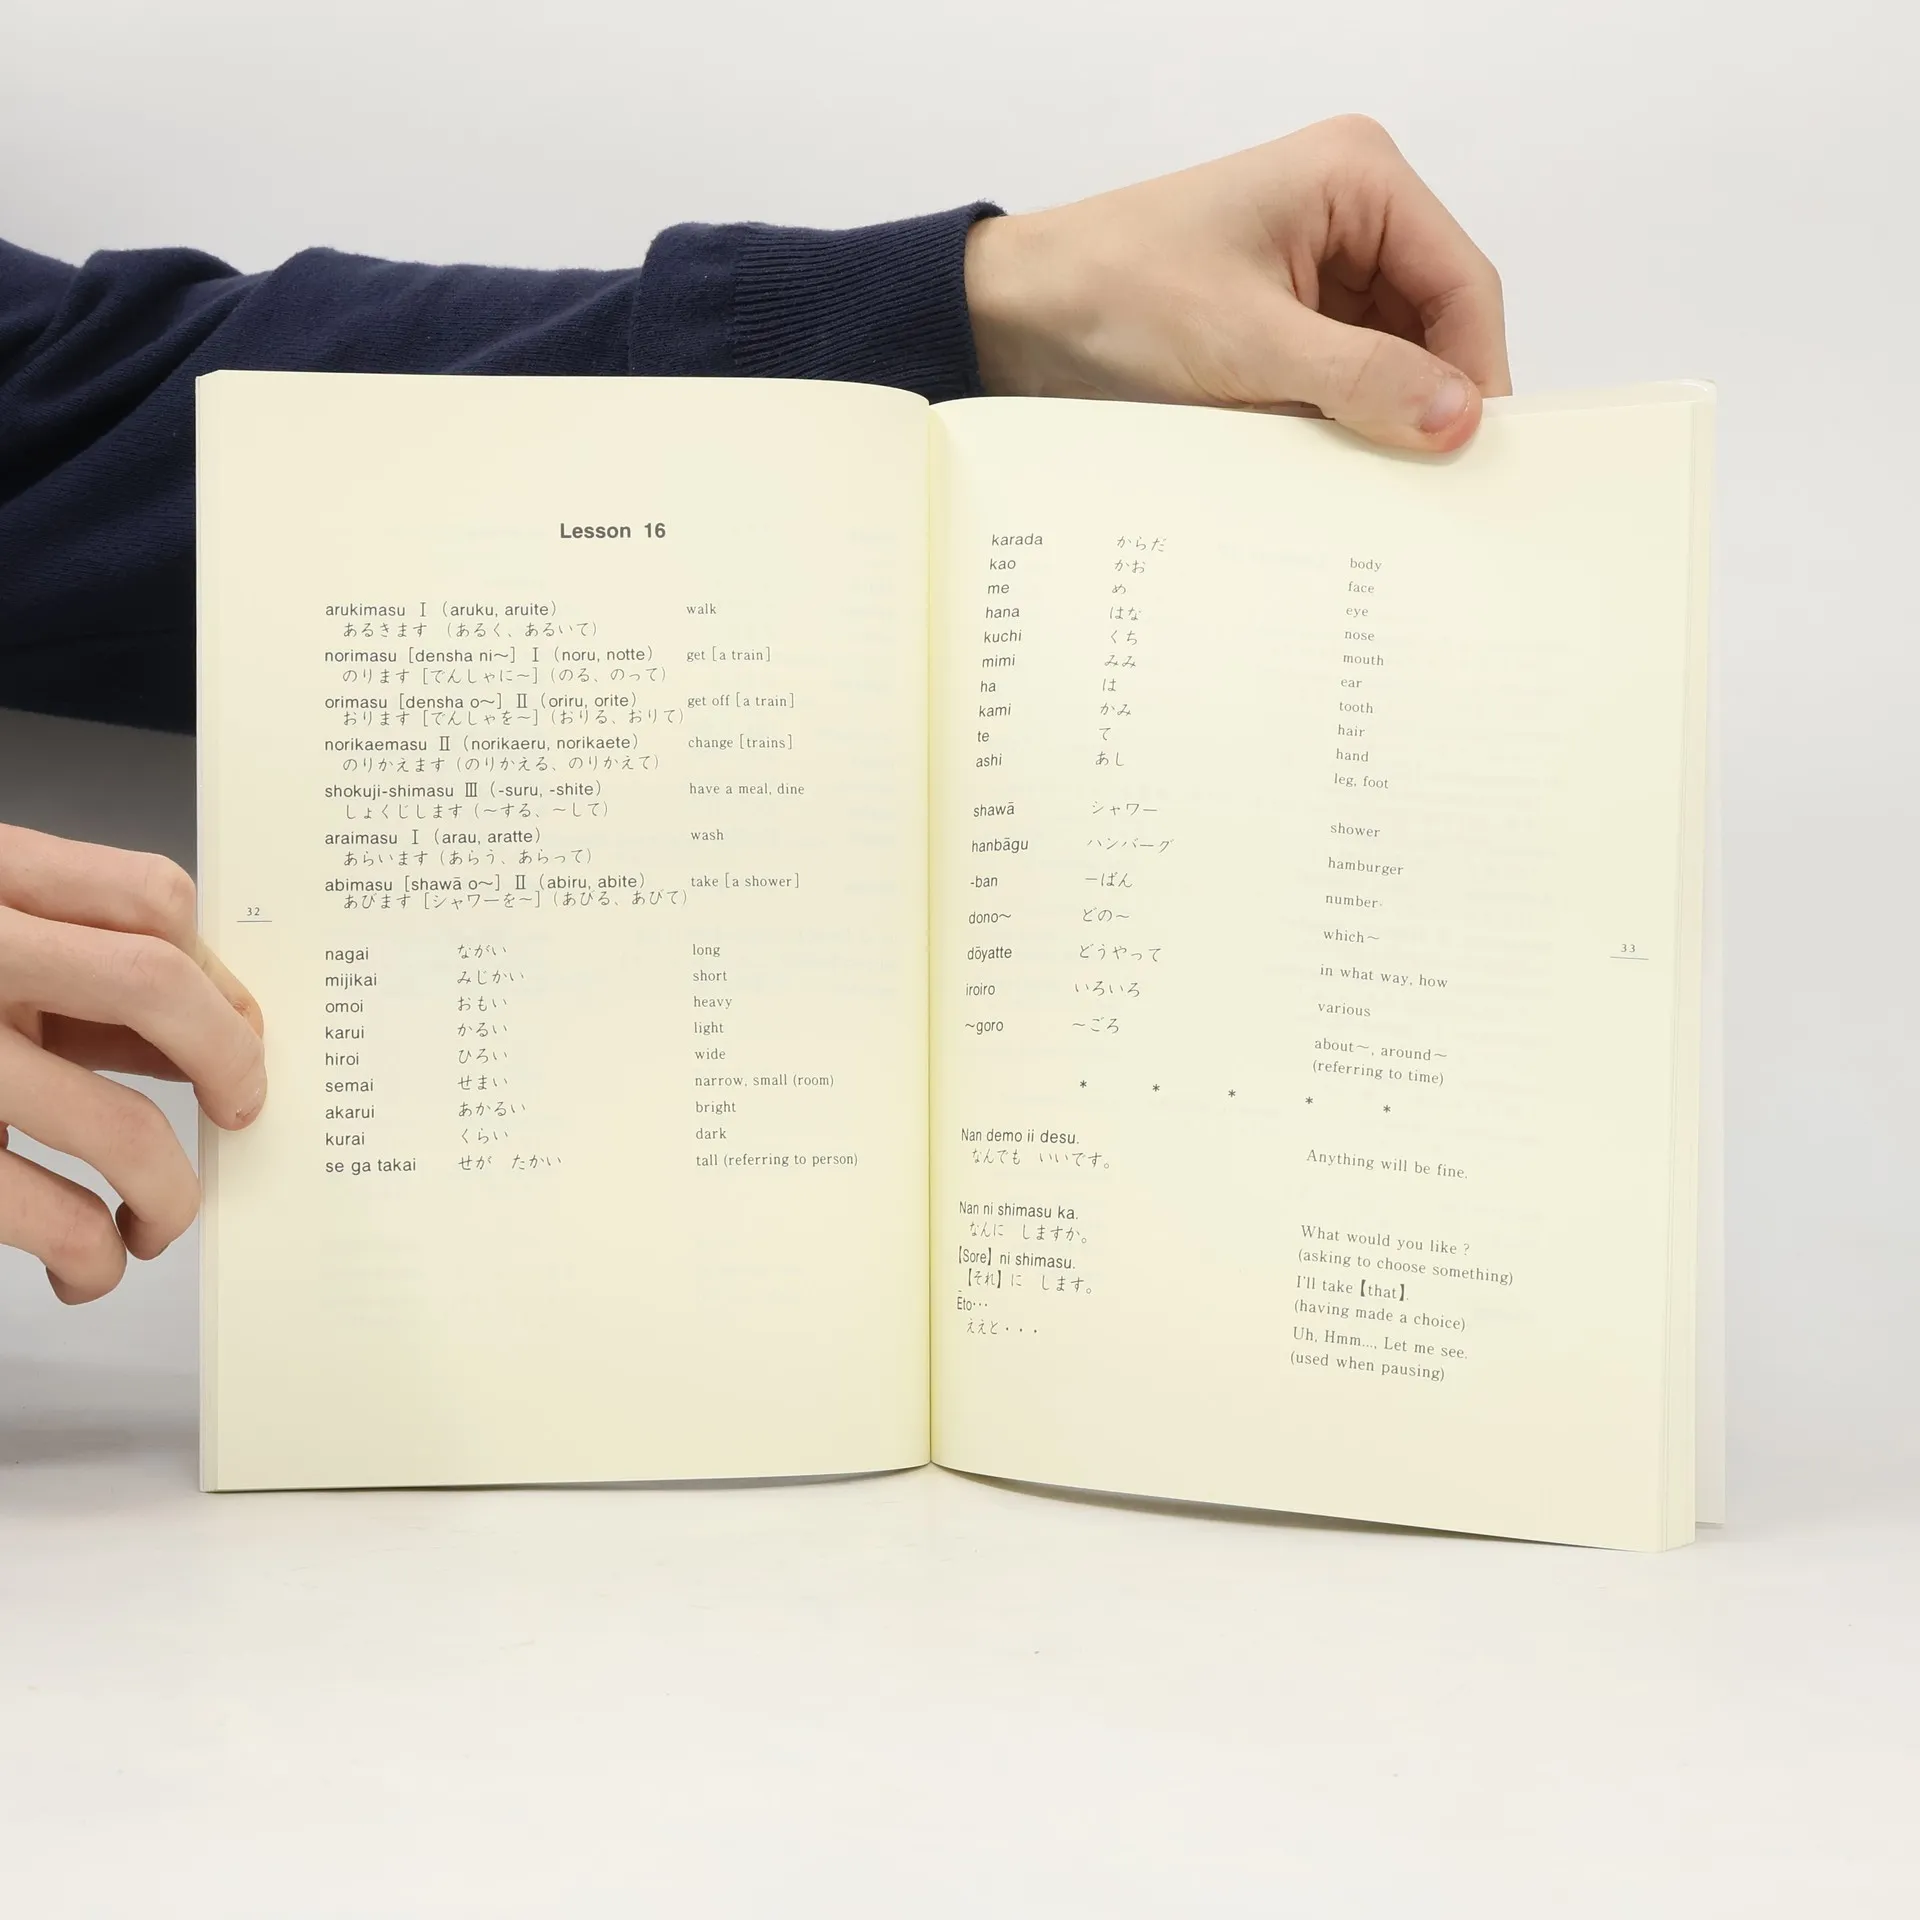 Lesson 16
arukimasu Ⅰ (aruku, aruite) walk
あるきます (あるく、あるいて)
norimasu [densha ni～] Ⅰ (noru, notte) get [a train]
のります [でんしゃに～] (のる、のって)
orimasu [densha o～] Ⅱ (oriru, orite) get off [a train]
おります [でんしゃを～] (おりる、おりて)
norikaemasu Ⅱ (norikaeru, norikaete) change [trains]
のりかえます (のりかえる、のりかえて)
shokuji-shimasu Ⅲ (-suru, -shite) have a meal, dine
しょくじします (～する、～して)
araimasu Ⅰ (arau, aratte) wash
あらいます (あらう、あらって)
abimasu [shawā o～] Ⅱ (abiru, abite) take [a shower]
あびます [シャワーを～] (あびる、あびて)
32
nagai ながい long
mijikai みじかい short
omoi おもい heavy
karui かるい light
hiroi ひろい wide
semai せまい narrow, small (room)
akarui あかるい bright
kurai くらい dark
se ga takai せが たかい tall (referring to person)
karada からだ body
kao かお face
me め eye
hana はな nose
kuchi くち mouth
mimi みみ ear
ha は tooth
kami かみ hair
te て hand
ashi あし leg, foot
shawā シャワー shower
hanbāgu ハンバーグ hamburger
-ban ーばん number-
dono～ どの～ which～
33
dōyatte どうやって in what way, how
iroiro いろいろ various
～goro ～ごろ about～, around～
(referring to time)
* * * * *
Nan demo ii desu.
なんでも いいです。 Anything will be fine.
Nan ni shimasu ka. What would you like ?
なんに しますか。 (asking to choose something)
【Sore】 ni shimasu. I'll take【that】.
【それ】に します。 (having made a choice)
Ēto… Uh, Hmm..., Let me see.
ええと・・・ (used when pausing)